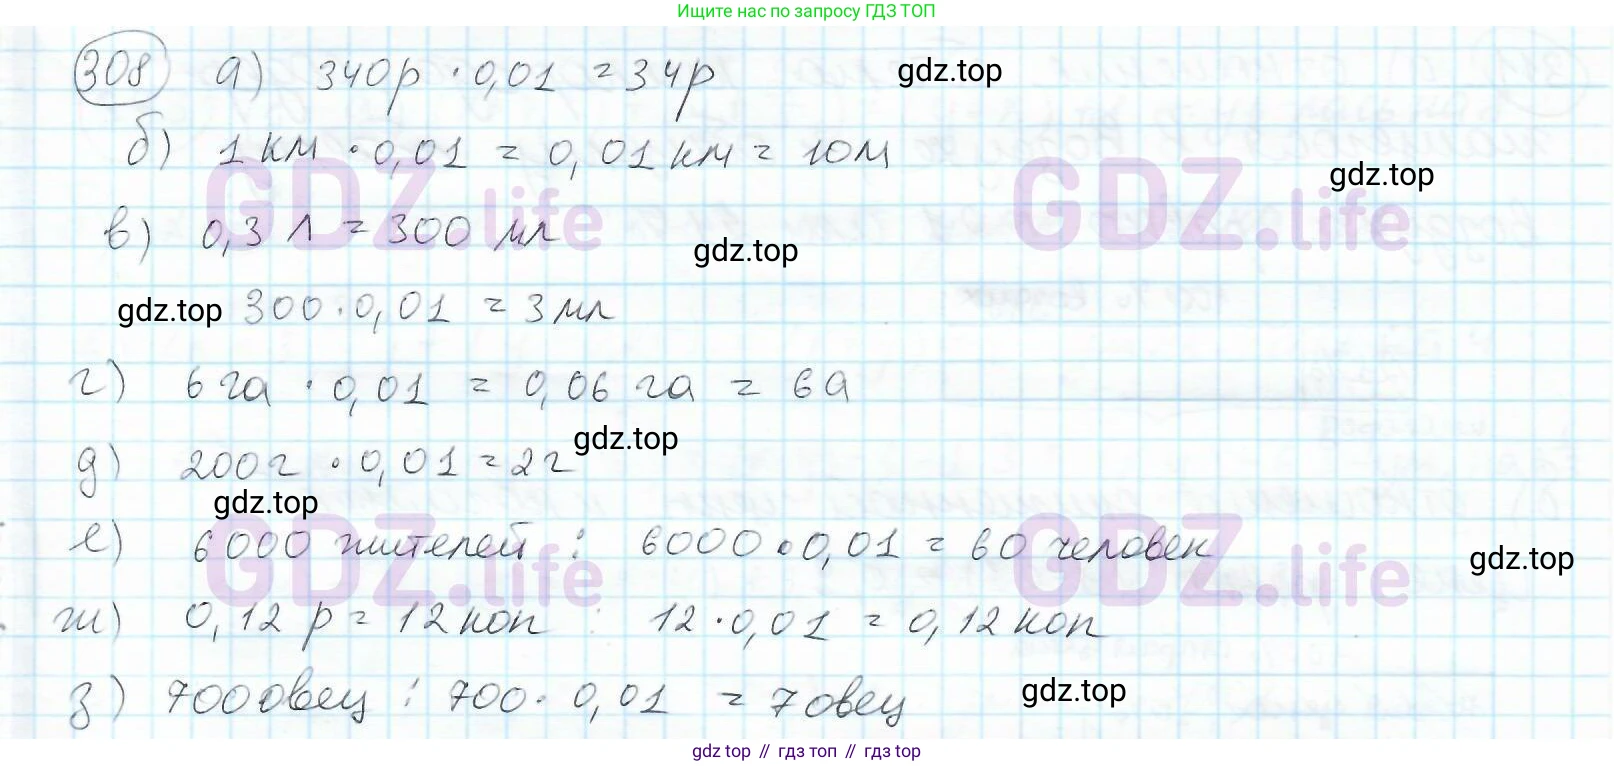 Ищите нас по запросу ГДЗ ТОП
308 а) 340р · 0,01 = 34р
gdz.top
б) 1 км · 0,01 = 0,01 км = 10м
GDZ.life GDZ.life
gdz.top
в) 0,3 л = 300 мл
gdz.top
gdz.top 300 · 0,01 = 3 мл
г) 6 га · 0,01 = 0,06 га = 6а
gdz.top
д) 200г · 0,01 = 2г
gdz.top
GDZ.life GDZ.life
е) 6000 жителей : 6000 · 0,01 = 60 человек
gdz.top
ж) 0,12 р = 12 коп : 12 · 0,01 = 0,12 коп
з) 700 овец : 700 · 0,01 = 7 овец
gdz.top
gdz.top // гдз топ // гдз top